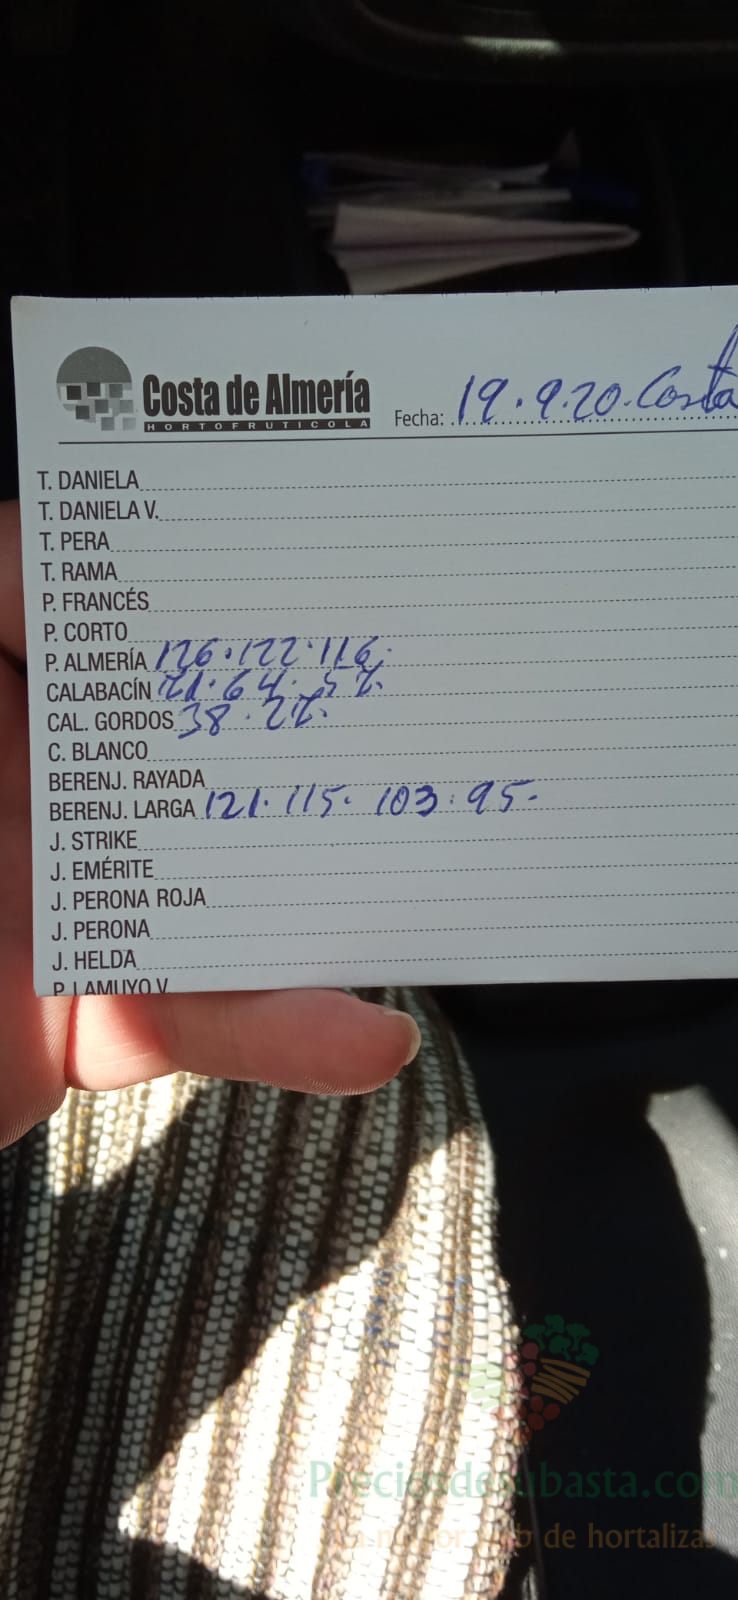 Costa de Almería
HORTOFRUTICOLA
Fecha: 19.9.20. Costa
T. DANIELA
T. DANIELA V.
T. PERA
T. RAMA
P. FRANCÉS
P. CORTO
P. ALMERÍA 126. 122. 116.
CALABACÍN 64.
CAL. GORDOS 38.
C. BLANCO
BERENJ. RAYADA
BERENJ. LARGA 121. 115. 103. 95.
J. STRIKE
J. EMÉRITE
J. PERONA ROJA
J. PERONA
J. HELDA
P. LAMUYO V.
Preciosdesubasta.com
La mejor web de hortalizas